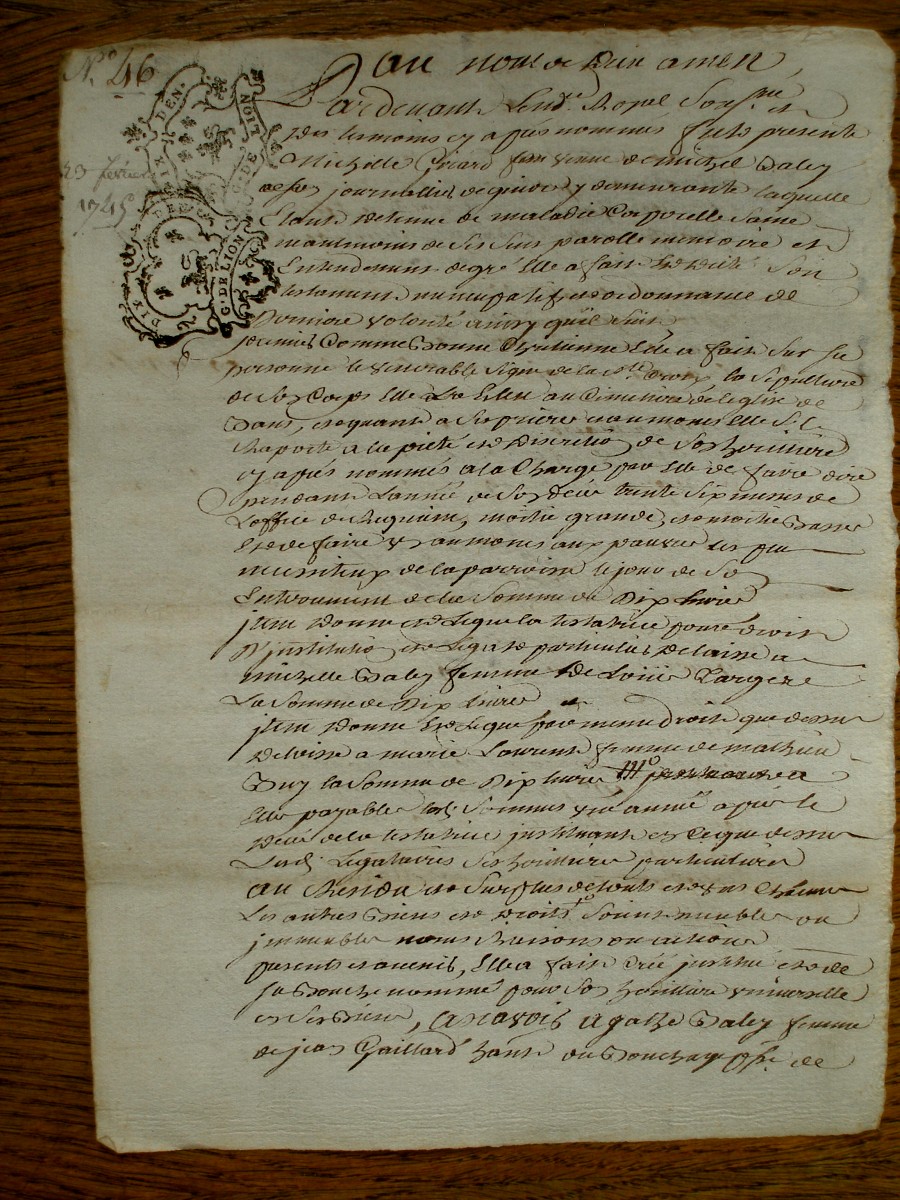 N.º 46
23 février
1745
DIX DEN.
G. DE LION
au nom de Dieu amen,
Pardevant Le no.re Royal Sous.né et
Des tesmoins cy apres nommés fust presente
Michelle Girard veuve de michel Baley
journallier de y demeurante laquelle
Etant detenue de maladie Corporelle saine
neantmoins de ses sens parolle memoire et
Entendement de gré Elle a fait Son
testament nuncupatif et ordonnance de
Derniere volonté ainsy qu'il suit
premier Comme Bonne Chretienne Elle a fait Sur sa
personne le venerable Signe de la S.te Croix la Sepulture
de Son Corps Elle a Elu au Cimetiere de l'eglise de
et quant a Ses prieres et aumones Elle S'en
Raporte a la pieté et Discretion de Son heritiere
cy apres nommée a la Charge par Elle de faire dire
pendant L'année de Son Decés trente Six messes de
L'office de Requiem, moitié grande, et moitié Basse
Et de faire aumones aux pauvres les plus
necessiteux de la parroisse le jour de Son
Enterrement de la Somme de Dix livres
jtem Donne et Legue la testatrice pour droit
D'institution et Legat particulier Delaisse a
michelle Baley femme De Loüis Largere
La Somme de Dix livres
jtem Donne et Legue pour meme droit que dessus
Delaisse a marie Laurent femme de mathieu
Buy la Somme de Dix livres
Elle payable lesd. Sommes une année apres le
Decés de la testatrice jnstituant et Legue dessus
Lesd. Legataires Ses heritieres particulieres
au Residu et Surplus de touts et uns Chacuns
Les autres Biens et Droits Soient meubles ou
jmmeubles noms Raisons ou actions
presents et avenir, Elle a fait Créé jnstitué et de
Sa Bouche nommé pour Son heritiere universelle
et Ses Biens, a Scavoir agathe Baley femme
de jean Gaillard hante du Bouchage p.sse de